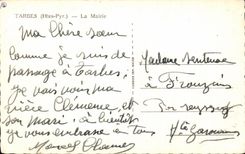 TARBES (Htes-Pyr.) — La Mairie
Ma Chère sœur
Comme je suis de
passage à Tarbes,
je vais voir ma
nièce Clémence et
son mari à bientôt
je vous embrasse en tous
Marcel
Madame
à Frouzins
par Seysses
Hte Garonne